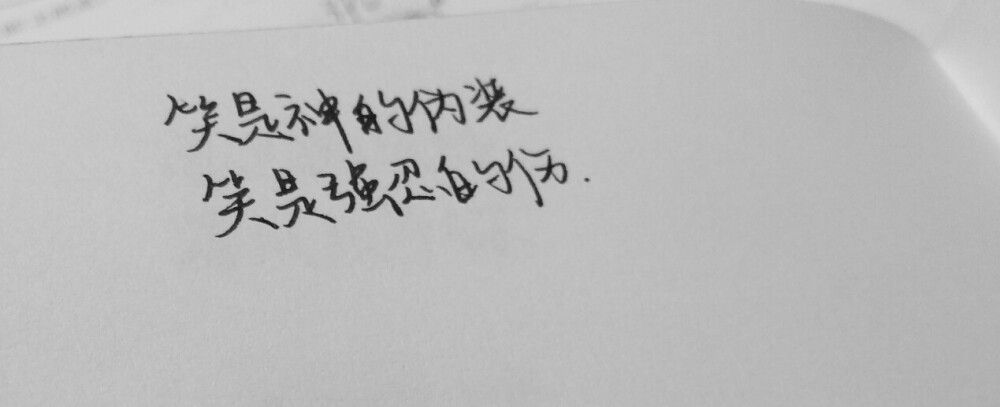 笑是神的伪装
笑是强忍的伤.